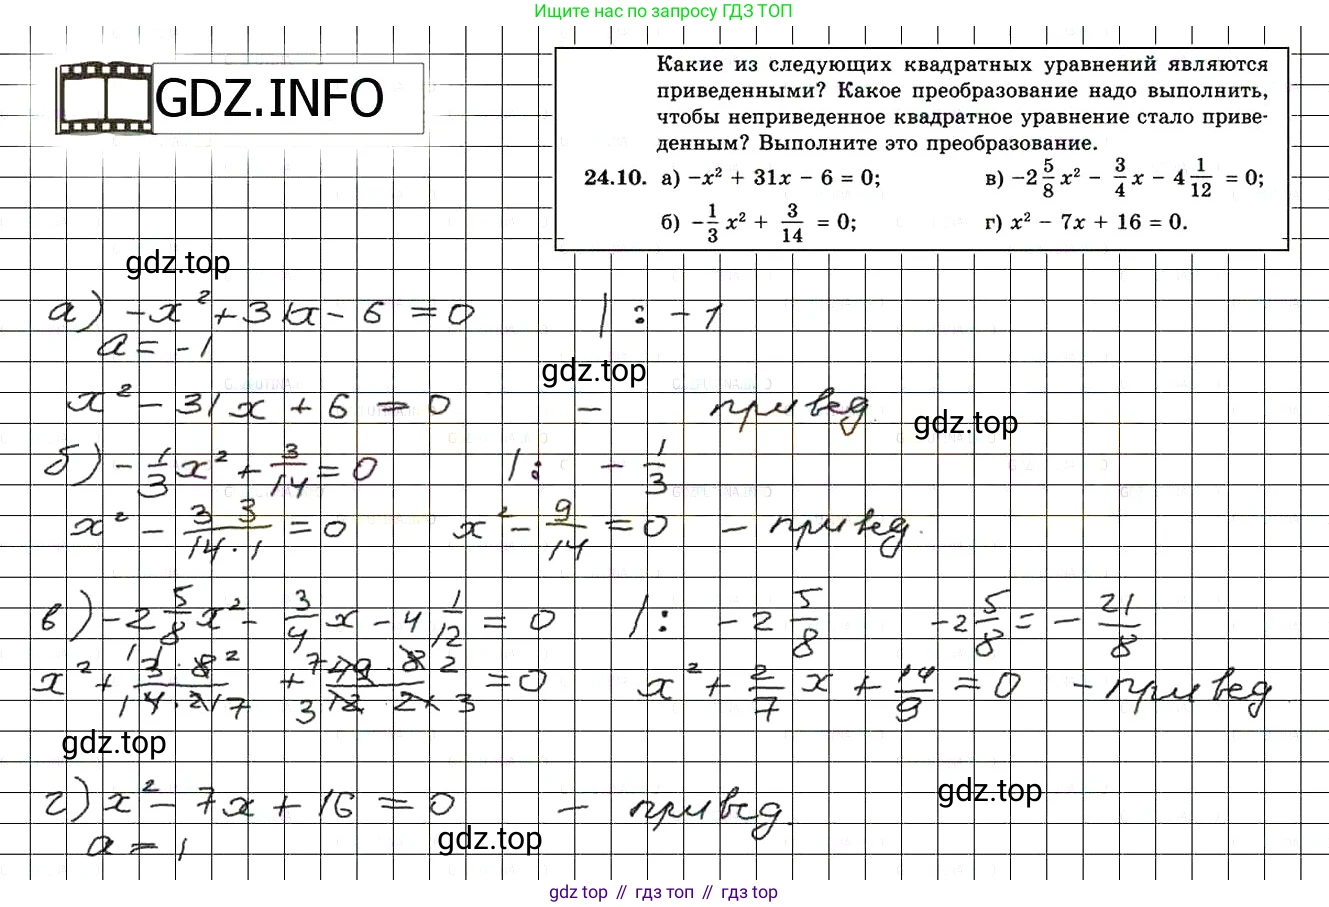 Ищите нас по запросу ГДЗ ТОП
GDZ.INFO
Какие из следующих квадратных уравнений являются
приведенными? Какое преобразование надо выполнить,
чтобы неприведенное квадратное уравнение стало приве-
денным? Выполните это преобразование.
24.10. а) −x² + 31x − 6 = 0; в) −2 5/8 x² − 3/4 x − 4 1/12 = 0;
б) −1/3 x² + 3/14 = 0; г) x² − 7x + 16 = 0.
gdz.top
а) −x² + 31x − 6 = 0 | : −1
a = −1
gdz.top
x² − 31x + 6 = 0 − привед.
gdz.top
б) −1/3 x² + 3/14 = 0 | : −1/3
x² − 3·3/14·1 = 0 x² − 9/14 = 0 − привед.
в) −2 5/8 x² − 3/4 x − 4 1/12 = 0 | : −2 5/8 −2 5/8 = −21/8
x² + 3·8/4·21 + 49·8/12·21 = 0 x² + 2/7 x + 14/9 = 0 − привед.
gdz.top
г) x² − 7x + 16 = 0 − привед.
gdz.top
a = 1
gdz.top
gdz top // гдз топ // гдз top